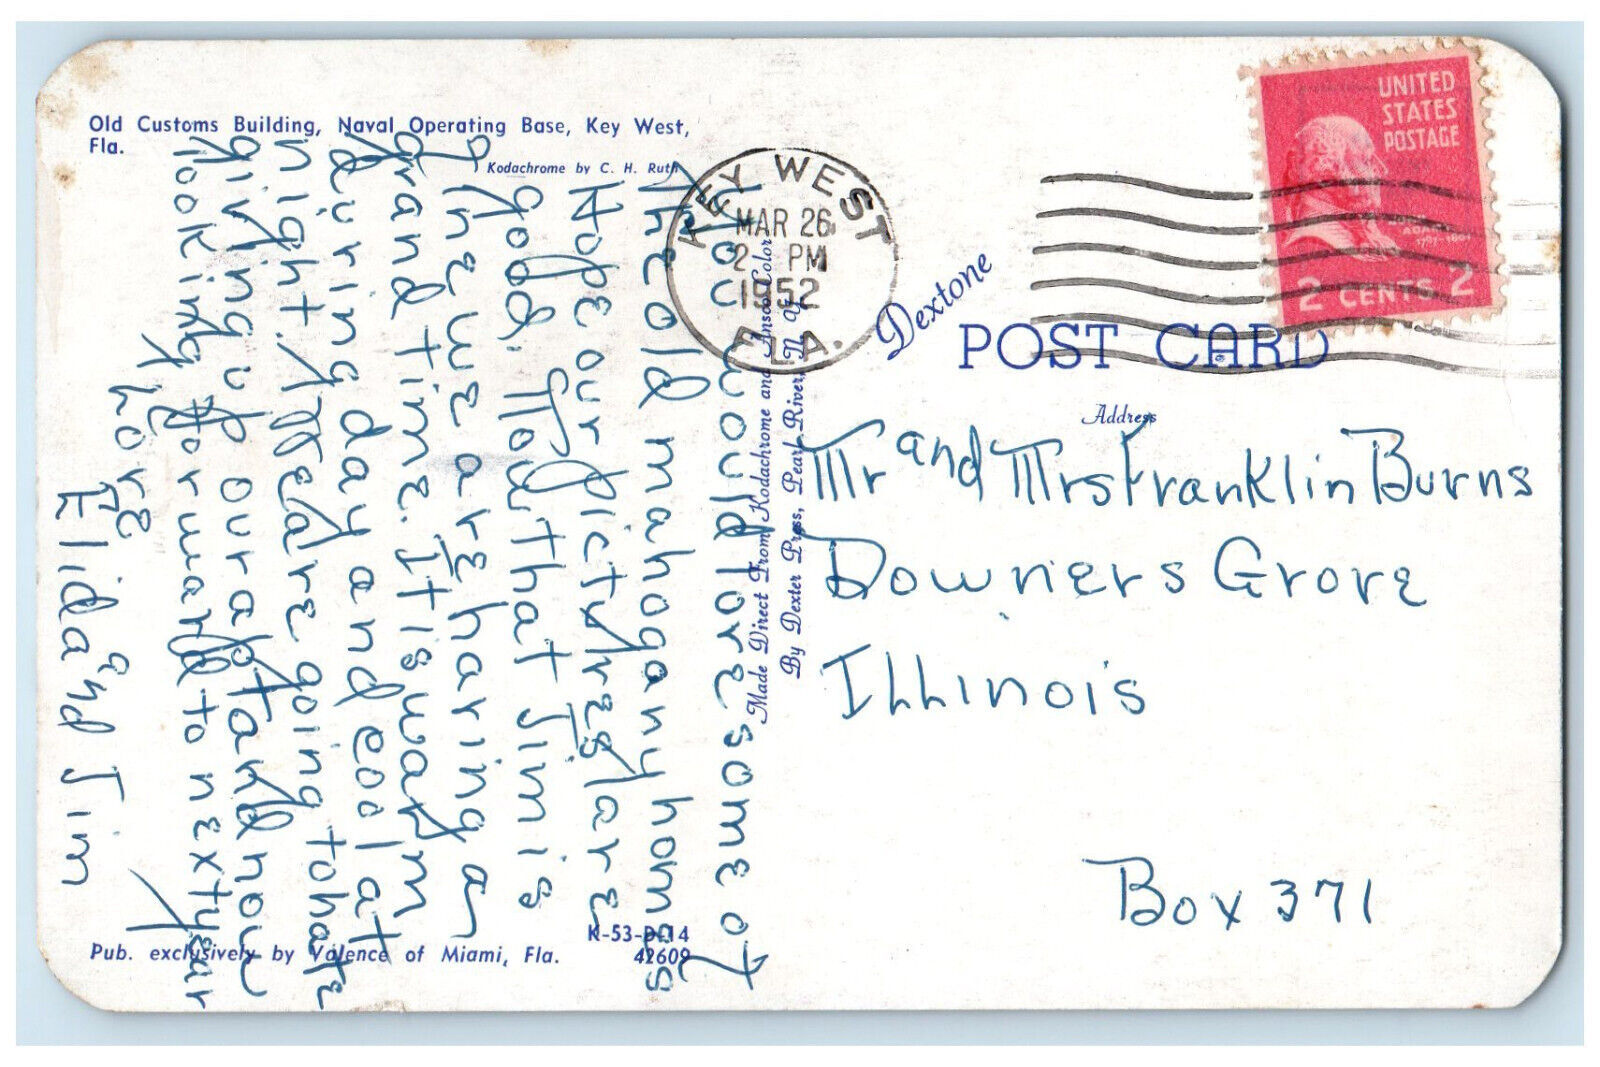 Old Customs Building, Naval Operating Base, Key West,
Fla.
Kodachrome by C. H. Ruth
You would love some of
the old mahogany homes
Hope our pictures are
good. Now that Jim is
here we are having a
grand time. It is warm
during day and cool at
night. We are going to hate
giving up our apt and now
looking forward to next year
Love
Elida and Jim
Pub. exclusively by Valence of Miami, Fla.
K-53-D-14
42609
Made Direct From Kodachrome and Ansco Color
By Dexter Press, Pearl River, N. Y.
KEY WEST
MAR 26
2 PM
1952
FLA.
UNITED
STATES
POSTAGE
ADAMS
1797-1801
2 CENTS 2
Dextone
POST CARD
Address
Mr and Mrs Franklin Burns
Downers Grove
Illinois
Box 371